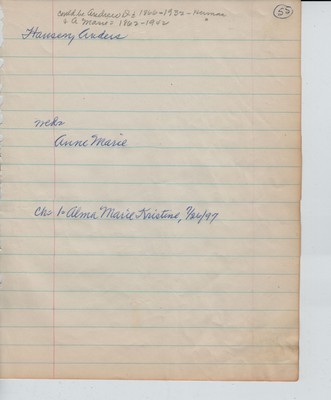 could be Andrew D? 1866-1932 - Herman
& A. Marie? 1862-1942 "
55
Hansen, Anders
weds
Anne Marie
Ch: 1- Alma Marie Kristine, 7/24/97